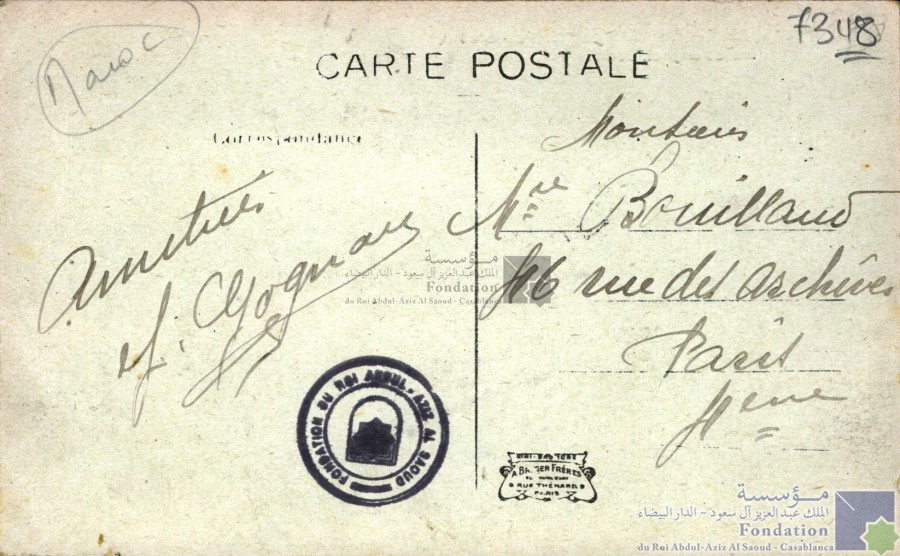 Maroc
7348
CARTE POSTALE
Correspondance
Monsieur
Mre Bouilland
rue des archives
Paris
Seine
Amitiés
مؤسسة
الملك عبد العزيز آل سعود - الدار البيضاء
Fondation
du Roi Abdul-Aziz Al Saoud - Casablanca
FONDATION DU ROI ABDUL-AZIZ AL SAOUD
BREGER FRÈRES
RUE THÉNARD, 9
PARIS
مؤسسة
الملك عبد العزيز آل سعود - الدار البيضاء
Fondation
du Roi Abdul-Aziz Al Saoud - Casablanca